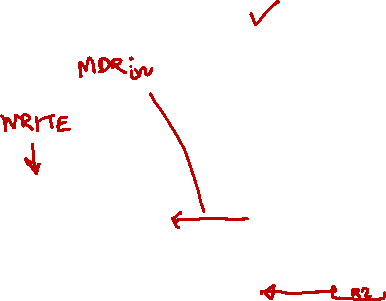 MDRin
WRITE
R2